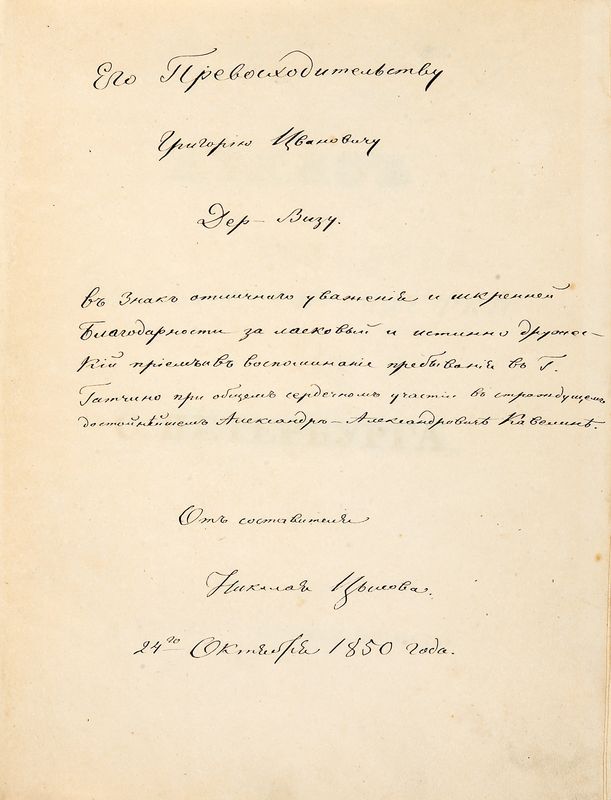 Его Превосходительству
Григорію Ивановичу
Дер-Визу.
въ Знакъ отличнаго уваженія и искренней
Благодарности за ласковый и истинно друже-
скій пріемъ, въ воспоминаніе пребыванія въ Г.
Гатчино при общемъ сердечномъ участіи въ страждущемъ
достойнѣйшемъ Александрѣ-Александровичѣ Кавелинѣ.
Отъ составителя
Николая Цылова.
24го Октября 1850 года.